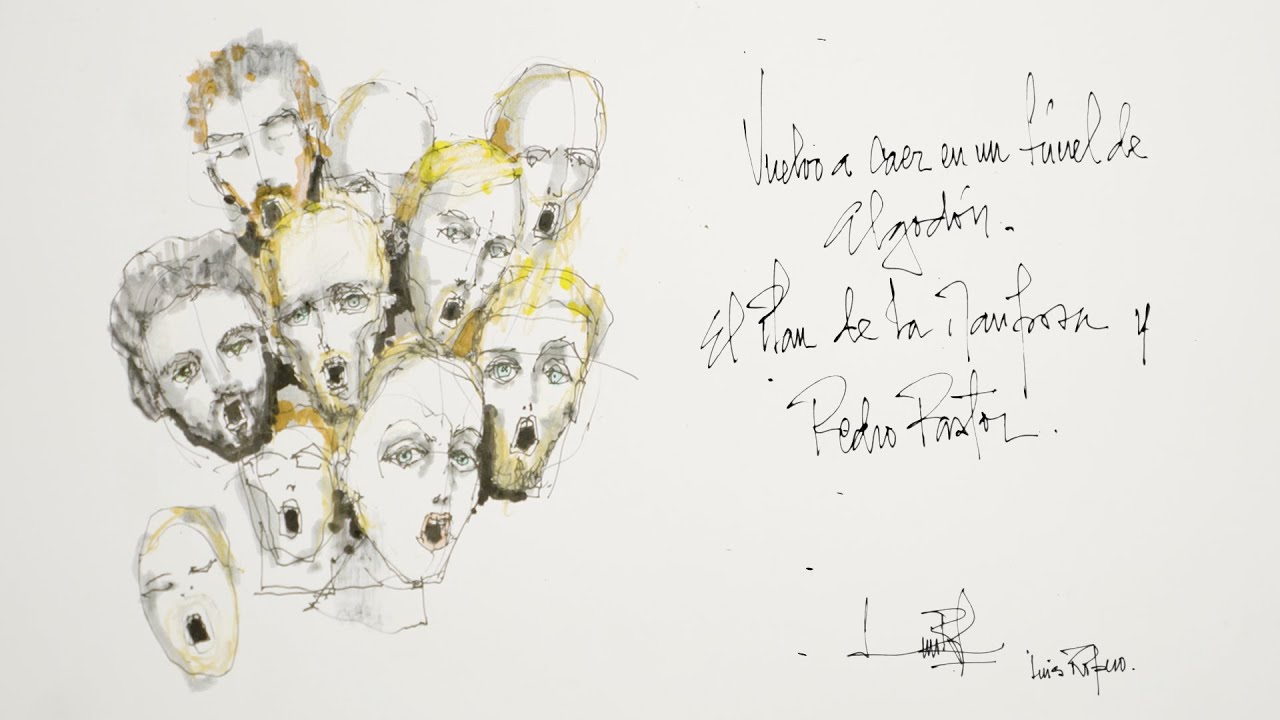 Vuelvo a caer en un túnel de
algodón.
El Plan de la Mariposa y
Pedro Pastor.
Luis